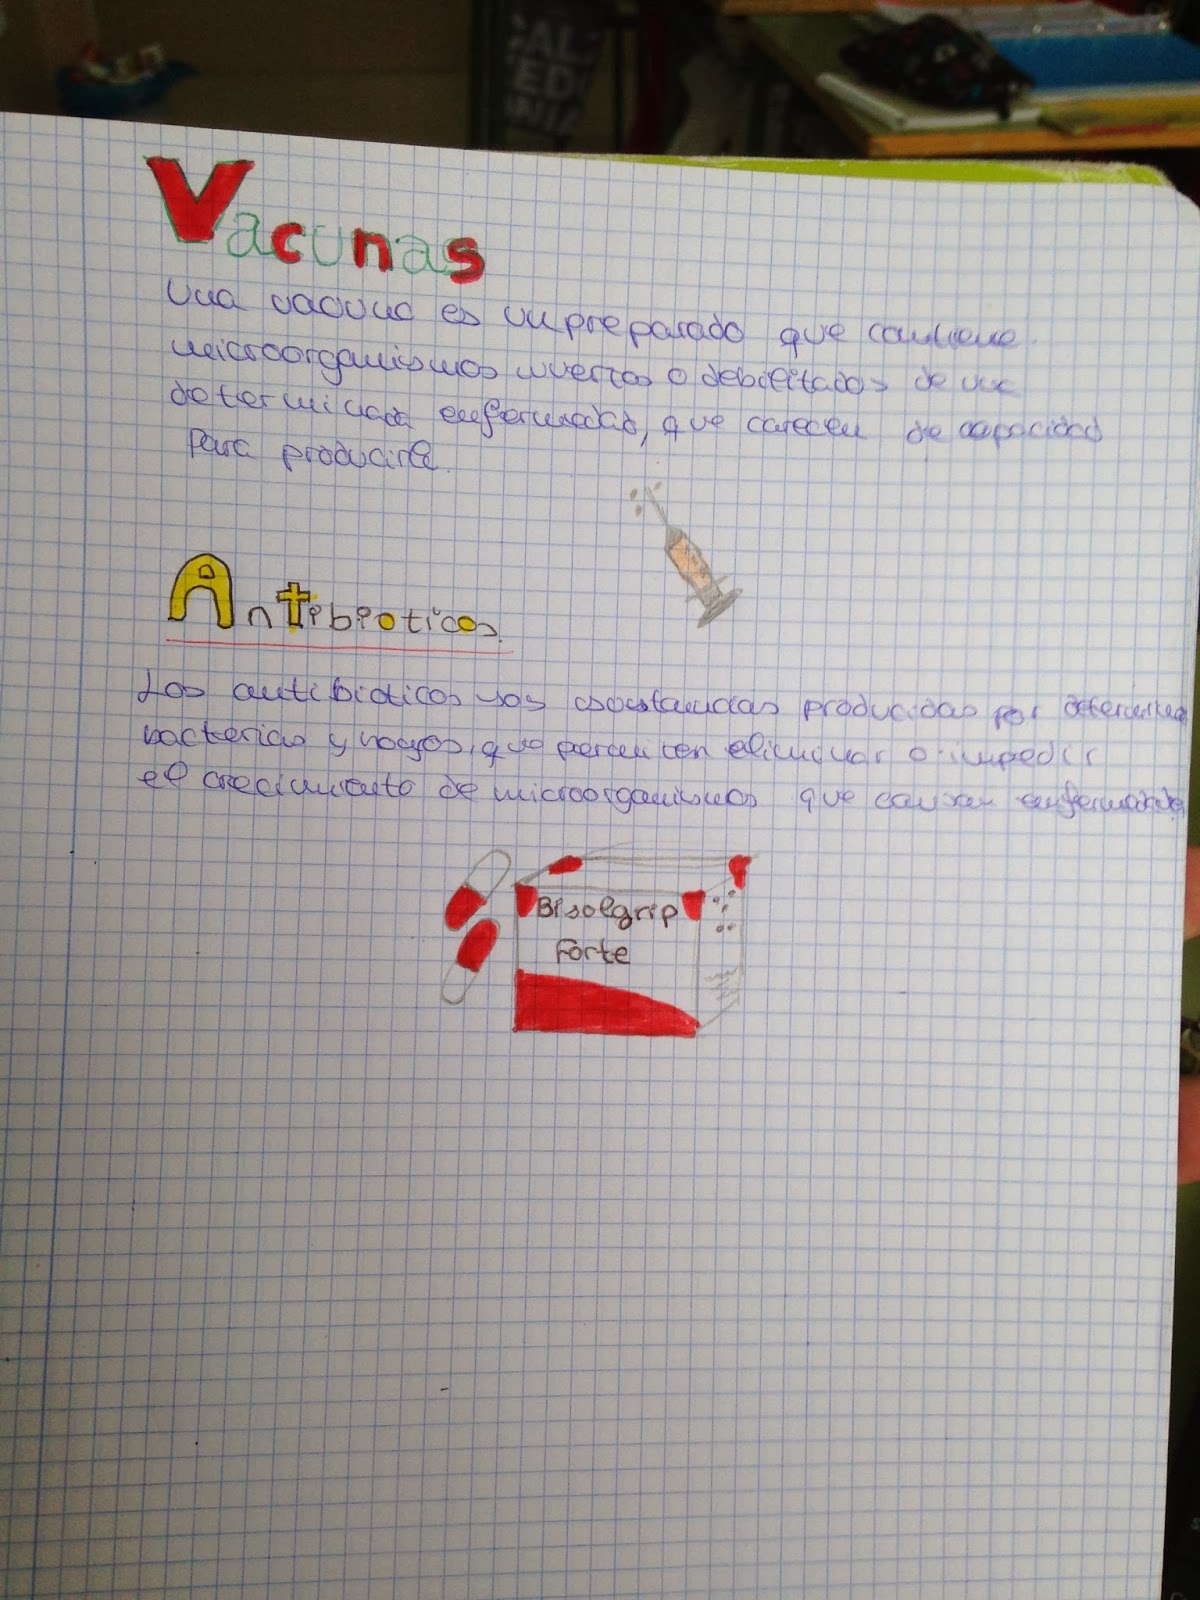 CAL
EDU
Vacunas
Una vacuna es un preparado que contiene
microorganismos muertos o debilitados de una
determinada enfermedad, que carecen de capacidad
para producirla.
Antibioticos.
Los antibioticos son substancias producidas por determinadas
bacterias y hongos, que permiten eliminar o impedir
el crecimiento de microorganismos que causan enfermedades
Bisolgrip
Forte